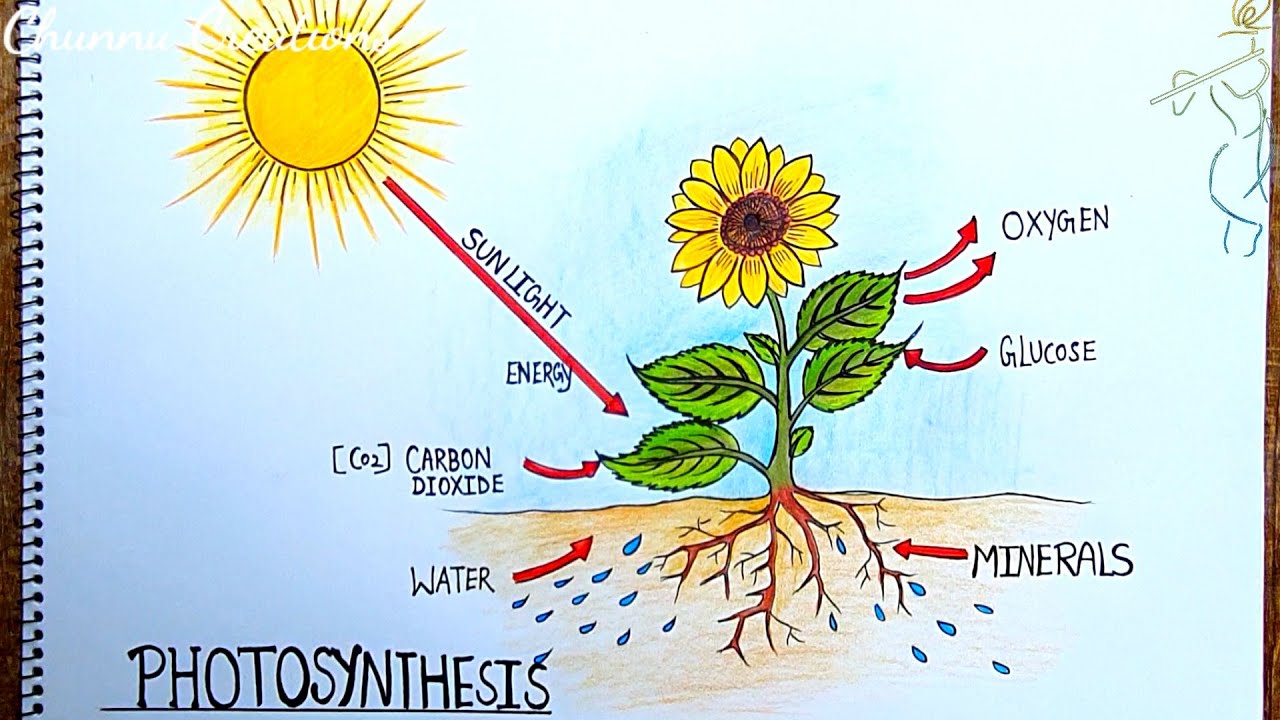 Chunnu Creations
SUNLIGHT
ENERGY
OXYGEN
GLUCOSE
[CO2] CARBON
DIOXIDE
WATER
MINERALS
PHOTOSYNTHESIS